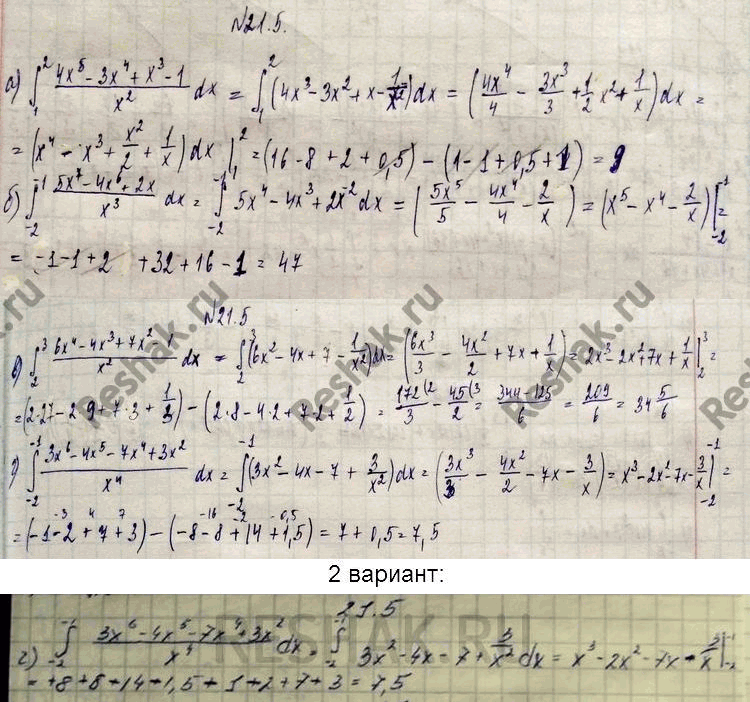 №21.5.
а) ∫₁² (4x⁵ - 3x⁴ + x³ - 1)/x² dx = ∫₁² (4x³ - 3x² + x - 1/x²)dx = (4x⁴/4 - 3x³/3 + 1/2 x² + 1/x)dx =
= (x⁴ - x³ + x²/2 + 1/x) dx |₁² = (16 - 8 + 2 + 0,5) - (1 - 1 + 0,5 + 1) = 9
б) ∫₋₂⁻¹ (5x⁷ - 4x⁶ + 2x)/x³ dx = ∫₋₂⁻¹ 5x⁴ - 4x³ + 2x⁻² dx = (5x⁵/5 - 4x⁴/4 - 2/x) = (x⁵ - x⁴ - 2/x)|₋₂⁻¹ =
= -1 - 1 + 2 + 32 + 16 - 1 = 47
№21.5
в) ∫₂³ (6x⁴ - 4x³ + 7x² - 1)/x² dx = ∫₂³ (6x² - 4x + 7 - 1/x²)dx = (6x³/3 - 4x²/2 + 7x + 1/x) = 2x³ - 2x² + 7x + 1/x |₂³ =
= (2·27 - 2·9 + 7·3 + 1/3) - (2·8 - 4·2 + 7·2 + 1/2) = 172(2/3 - 45(3/2 = (344 - 125)/6 = 209/6 = 34 5/6
г) ∫₋₂⁻¹ (3x⁶ - 4x⁵ - 7x⁴ + 3x²)/x⁴ dx = ∫₋₂⁻¹ (3x² - 4x - 7 + 3/x²)dx = (3x³/3 - 4x²/2 - 7x - 3/x) = x³ - 2x² - 7x - 3/x |₋₂⁻¹ =
-3 4 7 -16 -2 -0,5
= (-1 - 2 + 7 + 3) - (-8 - 8 + 14 + 1,5) = 7 + 0,5 = 7,5
Reshak.ru
Reshak.ru
Reshak.ru
2 вариант:
RESHAK.RU
21.5
г) ∫₋₂⁻¹ (3x⁶ - 4x⁵ - 7x⁴ + 3x²)/x⁴ dx = ∫₋₂⁻¹ 3x² - 4x - 7 + 3/x² dx = x³ - 2x² - 7x - 3/x |₋₂⁻¹
= +8 + 8 - 14 - 1,5 - 1 - 2 + 7 + 3 = 7,5